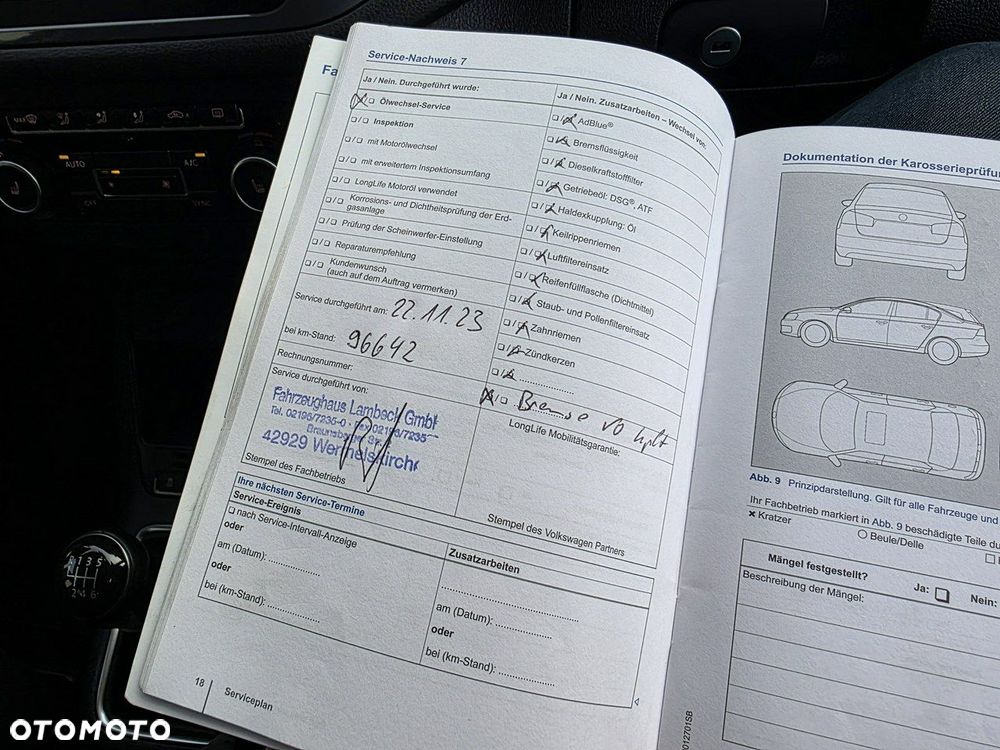 Service-Nachweis 7
Ja / Nein. Durchgeführt wurde:
❏/❏ Ölwechsel-Service
❏/❏ Inspektion
❏/❏ mit Motorölwechsel
❏/❏ mit erweitertem Inspektionsumfang
❏/❏ LongLife Motoröl verwendet
❏/❏ Korrosions- und Dichtheitsprüfung der Erd-
gasanlage
❏/❏ Prüfung der Scheinwerfer-Einstellung
❏/❏ Reparaturempfehlung
❏/❏ Kundenwunsch
(auch auf dem Auftrag vermerken)
Service durchgeführt am: 22.11.23
bei km-Stand: 96642
Rechnungsnummer:
Service durchgeführt von:
Fahrzeughaus Lambeck GmbH
Tel. 02196/7235-0 · Fax 02196/7235
Braunsberger Str.
42929 Wermelskirchen
Stempel des Fachbetriebs
Ja / Nein. Zusatzarbeiten – Wechsel von:
❏/❏ AdBlue®
❏/❏ Bremsflüssigkeit
❏/❏ Dieselkraftstofffilter
❏/❏ Getriebeöl: DSG®, ATF
❏/❏ Haldexkupplung: Öl
❏/❏ Keilrippenriemen
❏/❏ Luftfiltereinsatz
❏/❏ Reifenfüllflasche (Dichtmittel)
❏/❏ Staub- und Pollenfiltereinsatz
❏/❏ Zahnriemen
❏/❏ Zündkerzen
❏/❏ ....................
❏/❏ Bremse VO kplt
LongLife Mobilitätsgarantie:
Stempel des Volkswagen Partners
Ihre nächsten Service-Termine
Service-Ereignis
❏ nach Service-Intervall-Anzeige
oder
am (Datum): ................
oder
bei (km-Stand): ................
Zusatzarbeiten
am (Datum): ................
oder
bei (km-Stand): ................
18
Serviceplan
Fa
Dokumentation der Karosserieprüfun
Abb. 9 Prinzipdarstellung. Gilt für alle Fahrzeuge und
Ihr Fachbetrieb markiert in Abb. 9 beschädigte Teile du
✕ Kratzer
○ Beule/Delle
Mängel festgestellt?
Ja: ❏
Nein:
Beschreibung der Mängel:
012701SB
MAX
AUTO
A/C
OFF
SYNC
1 3 5
2 4 6
OTOMOTO